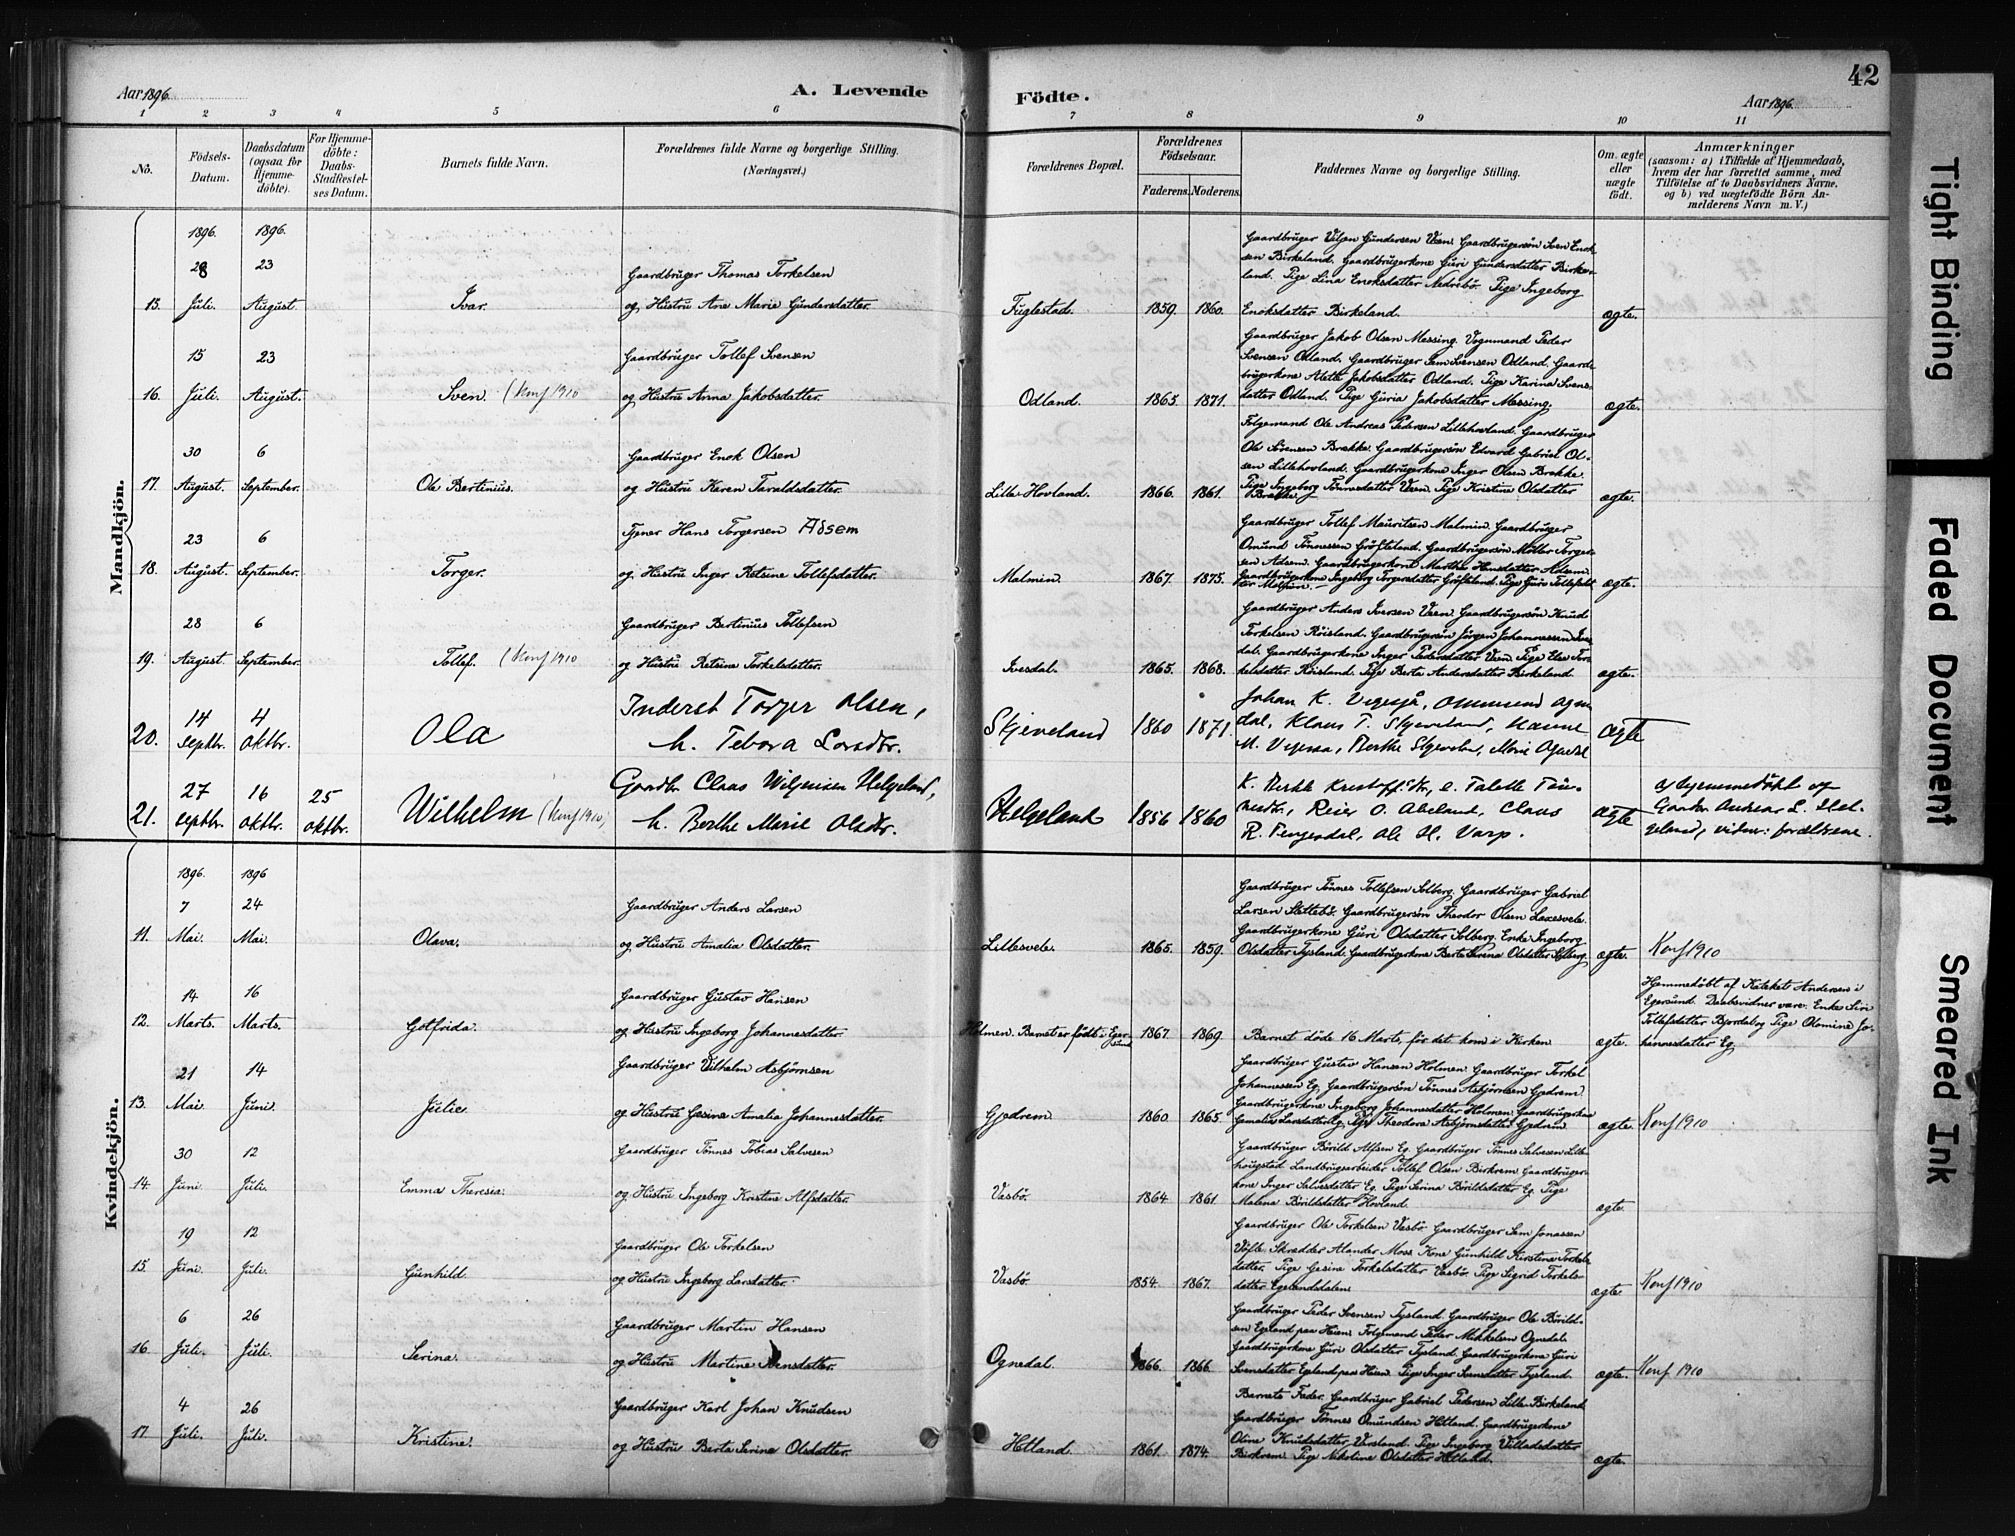 Aar 1896.
A. Levende
Födte.
Aar 1896.
42
1 2 3 4 5 6 7 8 9 10 11
No.
Födsels-Datum.
Daabsdatum (ogsaa for Hjemme-döbte).
For Hjemme-döbte: Daabs-Stadfæstel-ses Datum.
Barnets fulde Navn.
Forældrenes fulde Navne og borgerlige Stilling.
(Næringsvei.)
Forældrenes Bopæl.
Forældrenes Födselsaar.
Faderens. Moderens.
Faddernes Navne og borgerlige Stilling.
Om ægte eller uægte födt.
Anmærkninger
(saasom: a) i Tilfælde af Hjemmedaab,
hvem der har forrettet samme, med
Tilföielse af to Daabsvidners Navne,
og b) ved uægtefödte Börn An-
melderens Navn m. V.)
Mandkjön.
1896. 1896.
15. 28 Juli. 23 August. Ivar. Gaardbruger Thomas Torkelsen
og Hustru Ane Marie Gundersdatter. Fuglestad. 1859. 1860. ægte.
Gaardbruger Viljen Gundersen Veen. Gaardbrugersön Sven Enok-
sen Birkeland. Gaardbrugerkone Guri Gundersdatter Birke-
land. Pige Lina Enoksdatter Nedrebö. Pige Ingeborg
Enoksdatter Birkeland.
16. 15 Juli. 23 August. Sven. (Konf 1910 Gaardbruger Tollef Svensen
og Hustru Anna Jakobsdatter. Odland. 1865. 1871. ægte.
Gaardbruger Jakob Olsen Messing. Vognmand Peder
Svensen Odland. Gaardbruger Sem Svensen Odland. Gaard-
brugerkone Alette Jakobsdatter Odland. Pige Karina Svens-
datter Odland. Pige Guria Jakobsdatter Messing.
17. 30 August. 6 September. Ole Bertinius. Gaardbruger Enok Olsen
og Hustru Karen Taraldsdatter. Lille-Hovland. 1866. 1861. ægte.
Folgemand Ole Andreas Pedersen Lillehovland. Gaardbruger
Ole Sörensen Brække. Gaardbrugersön Edvard Gabriel Ol-
sen Lillehovland. Gaardbrugerkone Inger Olsen Brække.
Pige Ingeborg Tönnesdatter Veen. Pige Kristine Olsdatter
Brække.
18. 23 August. 6 September. Torger. Tjener Hans Torgersen Adsem
og Hustru Inger Retsine Tollefsdatter. Malmin. 1867. 1875. ægte.
Gaardbruger Tollef Mauritsen Malmin. Gaardbruger
Omund Tönnessen Gröfteland. Gaardbrugersön Möller Torger-
sen Adsem. Gaardbrugerkone Marthe Hansdatter Adsem.
Gaardbrugerkone Ingeborg Torgersdatter Gröfteland. Pige Guro Tollefsdat-
ter Malmin.
19. 28 August. 6 September. Tollef. (Konf 1910 Gaardbruger Bertinius Tollefsen
og Hustru Retsine Torkelsdatter. Ivesdal. 1865. 1868. ægte.
Gaardbruger Anders Iversen Veen. Gaardbrugersön Knud
Torkelsen Röisland. Gaardbrugersön Jörgen Johannessen Ives-
dal. Gaardbrugerkone Inger Pedersdatter Veen. Pige Else Tor-
kelsdatter Röisland. Pige Berta Andersdatter Birkeland.
20. 14 Septbr. 4 Oktbr. Ola Inderst Torger Olsen,
h. Tebora Larsdtr. Skjeveland 1860 1871. ægte
Johan K. Vegesjå, Ommund Ogn-
dal, Klaus T. Skjeveland, Hanne
21. 27 Septbr. 16 Oktbr. 25 Oktbr. Wilhelm (Konf 1910) Gaardbr. Claas Wiljmsen Helgeland,
h. Berthe Marie Olsdtr. Helgeland 1856 1860 ægte
Reier O. Abeland, Claus
R. Fengesdal, Ole H. Varp.
a) hjemmedøbt af
Gaardbr Andreas L. Hel-
geland, vidner: forældrene.
Kvindekjön.
1896. 1896
11. 7 Mai. 24 Mai. Olava. Gaardbruger Anders Larsen
og Hustru Amalia Olsdatter. Lillesvele. 1865. 1859. ægte. Konf 1910
Gaardbruger Tönnes Tollefsen Solberg. Gaardbruger Gabriel
Larsen Slettebö. Gaardbrugersön Theodor Olsen Laxesvele.
Gaardbrugerkone Guri Olsdatter Solberg. Enke Ingeborg
Olsdatter Tysland. Gaardbrugerkone Berta Serena Olsdatter Solberg.
12. 14 Marts. 16 Marts. Gotfrida. Gaardbruger Gustav Hansen
og Hustru Ingeborg Johannesdatter. Holmen. Barnet er födt i Eger-
sund 1867. 1869. Barnet döde 16 Marts, för det kom i Kirken. ægte.
Hjemmedöbt af Kateket Andersen i
Egersund. Daabsvidner vare: Enke Siri
Tollefsdatter Bjordal og Pige Olomine Jo-
hannesdatter Eg.
13. 21 Mai. 14 Juni. Julie. Gaardbruger Vilhelm Asbjörnsen
og Hustru Gesine Amalia Johannesdatter. Gjedrem. 1860 1865. ægte. Konf 1910
Gaardbruger Gustav Hansen Holmen. Gaardbruger Torkel
Johannessen Eg. Gaardbrugersön Tönnes Asbjörnsen Gjedrem.
Gaardbrugerkone Ingeborg Johannesdatter Holmen. Gaardbrugerkone
Larsdatter Eg. Pige Theodora Asbjörnsdatter Gjedrem
14. 30 Juni. 12 Juli. Emma Theresia. Gaardbruger Tönnes Tobias Salvesen
og Hustru Ingeborg Kristine Alfsdatter. Vasbö. 1864. 1861. ægte.
Gaardbruger Börild Alfsen Eg. Gaardbruger Tönnes Salvesen Lille-
hougstad. Landbrugsarbeider Tollef Olsen Birkrem. Gaardbruger-
kone Inger Salvesdatter Eg. Pige Serina Börildsdatter Eg. Pige
Malena Börildsdatter Hovland.
15. 19 Juni. 12 Juli. Gunhild. Gaardbruger Ole Torkelsen
og Hustru Ingeborg Larsdatter. Vasbö. 1854. 1867. ægte. Konf 1910
Gaardbruger Ole Torkelsen Vasbö. Gaardbruger Sem Jonassen
Skrædder Alander Moss. Kone Gunhild Kirstine Torkels-
datter. Pige Gesine Torkelsdatter Vasbö. Pige Sigrid Torkels-
datter Egelandsdalen.
16. 6 Juli. 26 Juli. Serina. Gaardbruger Martin Hansen
og Hustru Martine Svensdatter. Ognedal. 1866. 1866. ægte. Konf 1910
Gaardbruger Peder Svensen Tysland. Gaardbruger Ole Börild-
sen Egeland paa Heien. Folgemand Peder Mikkelsen Ognedal.
Gaardbrugerkone Guri Olsdatter Tysland. Gaardbrugerkone Guri
Svensdatter Egeland paa Heien. Pige Inger Svensdatter Tysland.
17. 4 Juli. 26 Juli. Kristine. Gaardbruger Karl Johan Knudsen
og Hustru Berta Serine Olsdatter. Hetland. 1861. 1874. ægte.
Barnets Fader. Gaardbruger Gabriel Pedersen Lille-Birkeland.
Gaardbruger Tönnes Omundsen Hetland. Gaardbrugerkone
Oline Knudsdatter Versland. Pige Ingeborg Villadsdatter
Birkrem. Pige Nikoline Olsdatter Hetland.
Tight Binding
Faded Document
Smeared Ink